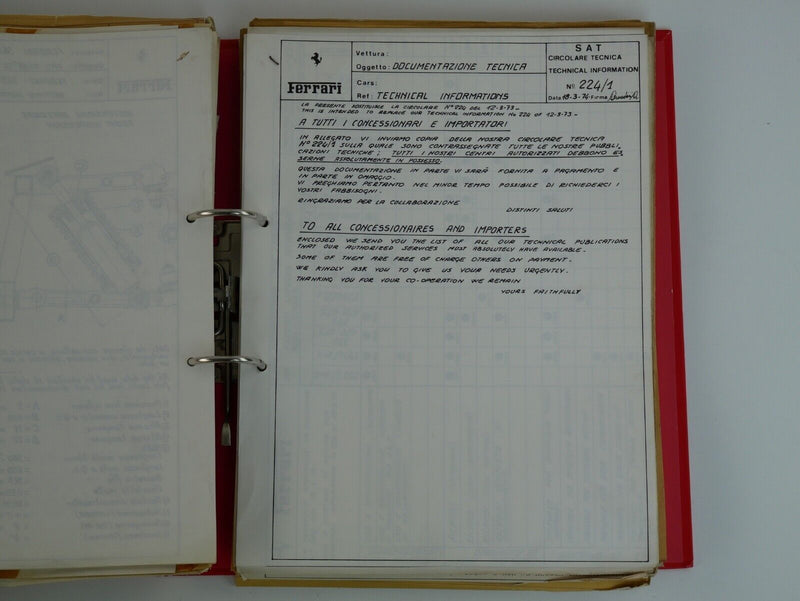 Ferrari
Vettura:
Oggetto: DOCUMENTAZIONE TECNICA
Cars:
Ref: TECHNICAL INFORMATIONS
SAT
CIRCOLARE TECNICA
TECHNICAL INFORMATION
No. 224/1
Data 18-3-74 Firma
LA PRESENTE SOSTITUISCE LA CIRCOLARE N° 224 DEL 12-3-73-
THIS IS INTENDED TO REPLACE OUR TECHNICAL INFORMATION No 224 OF 12-3-73-
A TUTTI I CONCESSIONARI E IMPORTATORI
IN ALLEGATO VI INVIAMO COPIA DELLA NOSTRA CIRCOLARE TECNICA
N° 224/1 SULLA QUALE SONO CONTRASSEGNATE TUTTE LE NOSTRE PUBBLI
CAZIONI TECNICHE; TUTTI I NOSTRI CENTRI AUTORIZZATI DEBBONO ES
SERNE ASSOLUTAMENTE IN POSSESSO.
QUESTA DOCUMENTAZIONE IN PARTE VI SARÀ FORNITA A PAGAMENTO E
IN PARTE IN OMAGGIO.
VI PREGHIAMO PERTANTO NEL MINOR TEMPO POSSIBILE DI RICHIEDERCI I
VOSTRI FABBISOGNI.
RINGRAZIAMO PER LA COLLABORAZIONE
DISTINTI SALUTI
TO ALL CONCESSIONAIRES AND IMPORTERS
ENCLOSED WE SEND YOU THE LIST OF ALL OUR TECHNICAL PUBLICATIONS
THAT OUR AUTHORIZED SERVICES MUST ABSOLUTELY HAVE AVAILABLE.
SOME OF THEM ARE FREE OF CHARGE OTHERS ON PAYMENT.
WE KINDLY ASK YOU TO GIVE US YOUR NEEDS URGENTLY.
THANKING YOU FOR YOUR CO-OPERATION WE REMAIN
YOURS FAITHFULLY